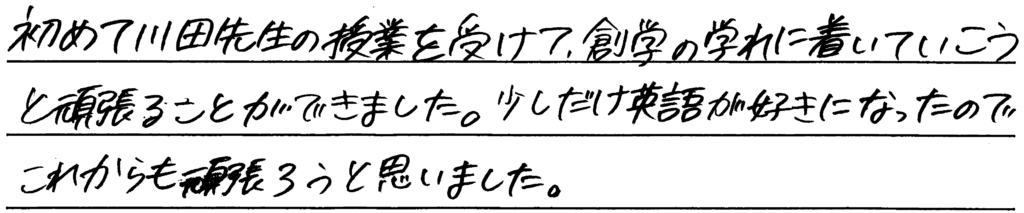 初めて川田先生の授業を受けて、創学の学れに着いていこう
と頑張ることができました。少しだけ英語が好きになったので
これからも頑張ろうと思いました。